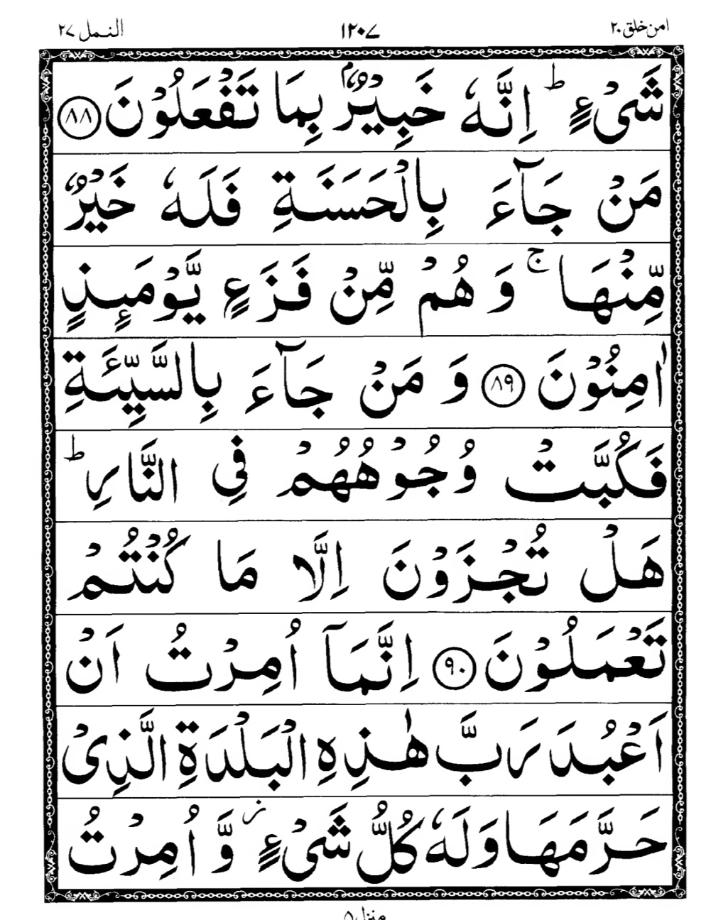 امن خلق ٢٠ ١٢٠٧ النمل ٢٧
شَىْءٍ ؕ اِنَّهٗ خَبِيْرٌۢ بِمَا تَفْعَلُوْنَ ﴿٨٨﴾
مَنْ جَآءَ بِالْحَسَنَةِ فَلَهٗ خَيْرٌ
مِّنْهَا ۚ وَ هُمْ مِّنْ فَزَعٍ يَّوْمَىِٕذٍ
اٰمِنُوْنَ ﴿٨٩﴾ وَ مَنْ جَآءَ بِالسَّيِّئَةِ
فَكُبَّتْ وُجُوْهُهُمْ فِى النَّارِ ؕ
هَلْ تُجْزَوْنَ اِلَّا مَا كُنْتُمْ
تَعْمَلُوْنَ ﴿٩٠﴾ اِنَّمَآ اُمِرْتُ اَنْ
اَعْبُدَ رَبَّ هٰذِهِ الْبَلْدَةِ الَّذِىْ
حَرَّمَهَا وَلَهٗ كُلُّ شَىْءٍ ؗ وَّ اُمِرْتُ
منزل ٥